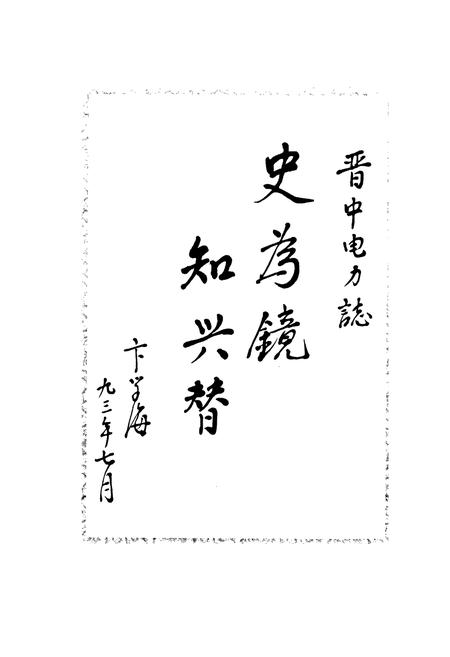 晋中电力誌
史为鏡
知兴替
卞学海
九三年七月